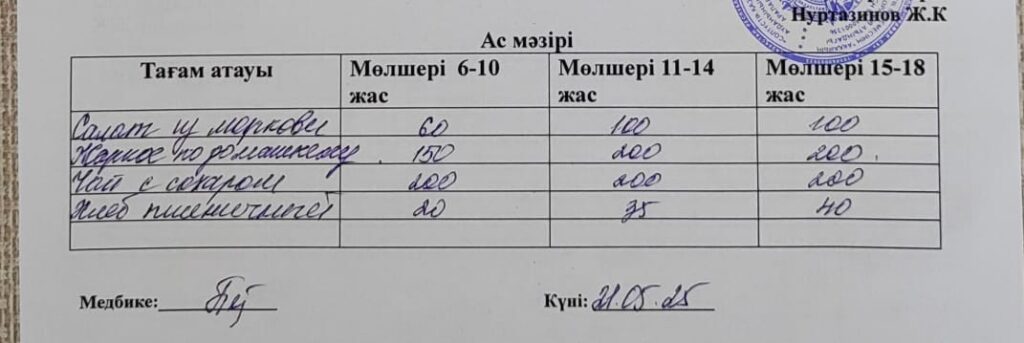 Нуртазинов Ж.К
Ас мәзірі
Тағам атауы Мөлшері 6-10 жас Мөлшері 11-14 жас Мөлшері 15-18 жас
Салат из моркови 60 100 100
Жаркое по домашнему 150 200 200
Чай с сахаром 200 200 200
Хлеб пшеничный 20 35 40
Медбике: Күні: 21.05.25